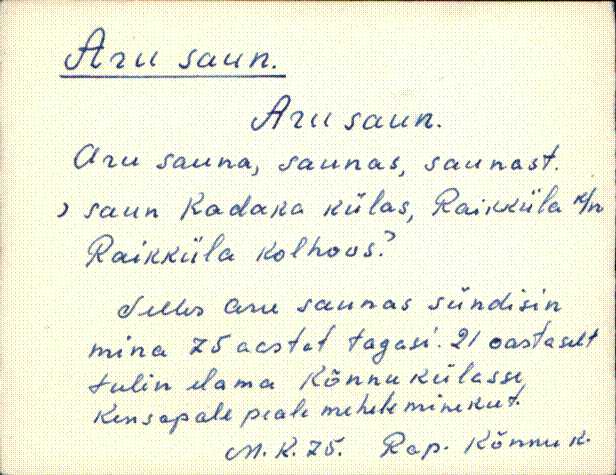 Aru saun.
Aru saun.
Aru sauna, saunas, saunast.
saun Kadaka külas, Raikküla k/n
Raikküla kolhoos?
Selles Aru saunas sündisin
mina 75 aastat tagasi. 21 aastaselt
tulin elama Kõnnu külasse,
peale mehele minekut.
M. K. 75. Rap. Kõnnu k.